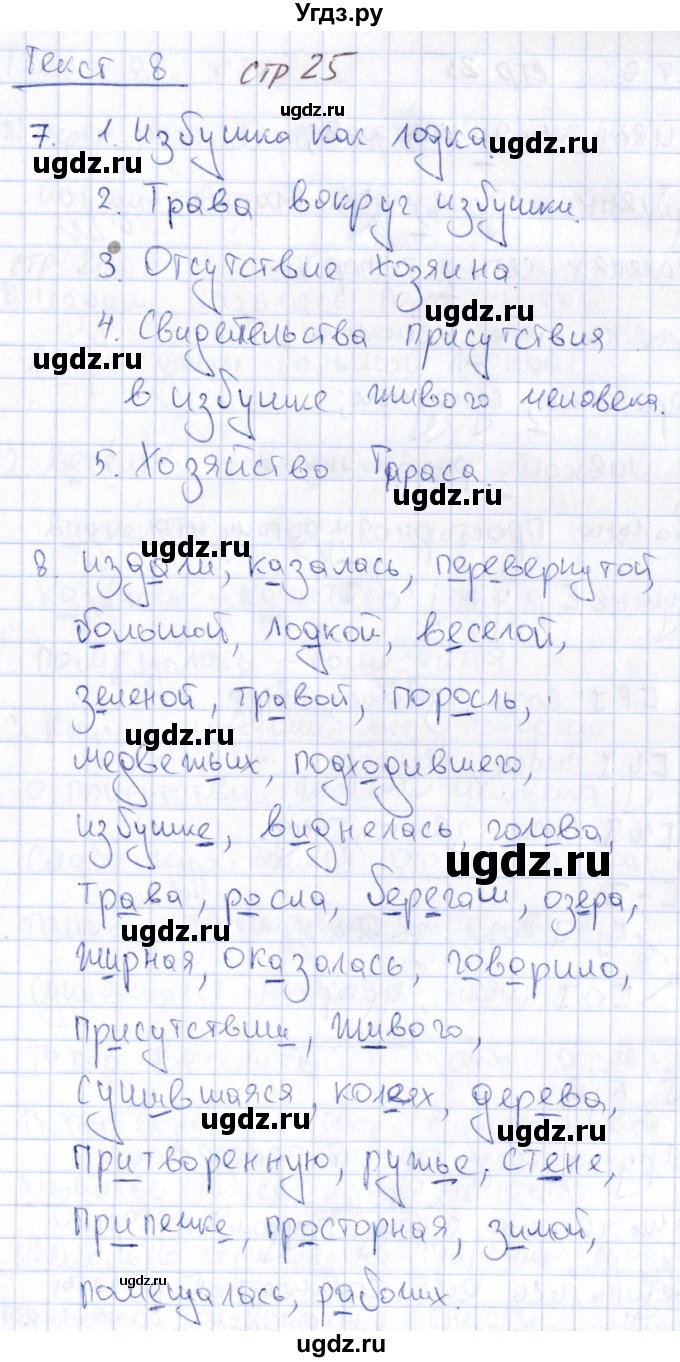 Угдз.ру
Текст 8 стр 25
ugdz.ru
7. 1. Избушка как лодка.
ugdz.ru ugdz.ru
2. Трава вокруг избушки.
3. Отсутствие хозяина.
ugdz.ru
4. Свидетельства присутствия
ugdz.ru
в избушке живого человека.
5. Хозяйство Тараса.
ugdz.ru
ugdz.ru
8. издали, казалась, перевернутой,
большой, лодкой, веселой,
зеленой, травой, поросль,
ugdz.ru
медвежьих, подходившего,
избушке, виднелась, голова,
ugdz.ru
трава, росла, берегам, озера,
ugdz.ru
жирная, оказалась, говорило,
присутствии, живого,
сушившаяся, кольях, дерева,
ugdz.ru ugdz.ru
притворенную, ружье, стене,
припечке, просторная, зимой,
ugdz.ru
помещалась, рабочих.
ugdz.ru